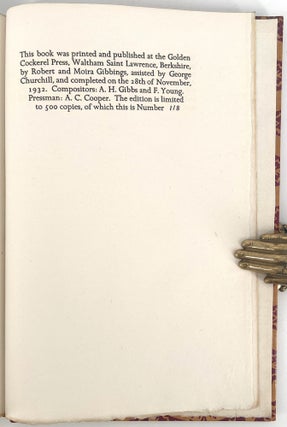 This book was printed and published at the Golden
Cockerel Press, Waltham Saint Lawrence, Berkshire,
by Robert and Moira Gibbings, assisted by George
Churchill, and completed on the 28th of November,
1932. Compositors: A. H. Gibbs and F. Young.
Pressman: A. C. Cooper. The edition is limited
to 500 copies, of which this is Number 118